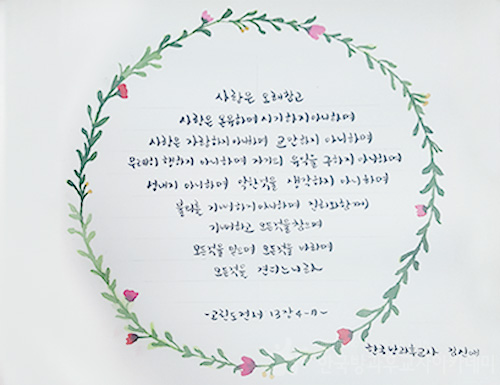 사랑은 오래참고
사랑은 온유하며 시기하지 아니하며
사랑은 자랑하지 아니하며 교만하지 아니하며
무례히 행하지 아니하며 자기의 유익을 구하지 아니하며
성내지 아니하며 악한것을 생각하지 아니하며
불의를 기뻐하지 아니하며 진리와 함께
기뻐하고 모든것을 참으며
모든것을 믿으며 모든것을 바라며
모든것을 견디느니라
-고린도전서 13장 4-7-
한국방과후교사